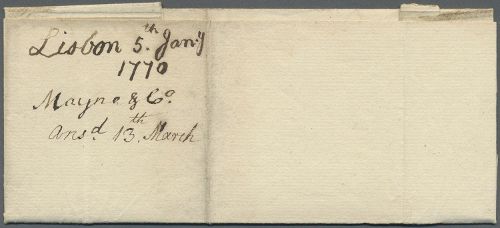 Lisbon 5.th Jan.y
1770
Mayne & Co.
Ansd. 13.th March